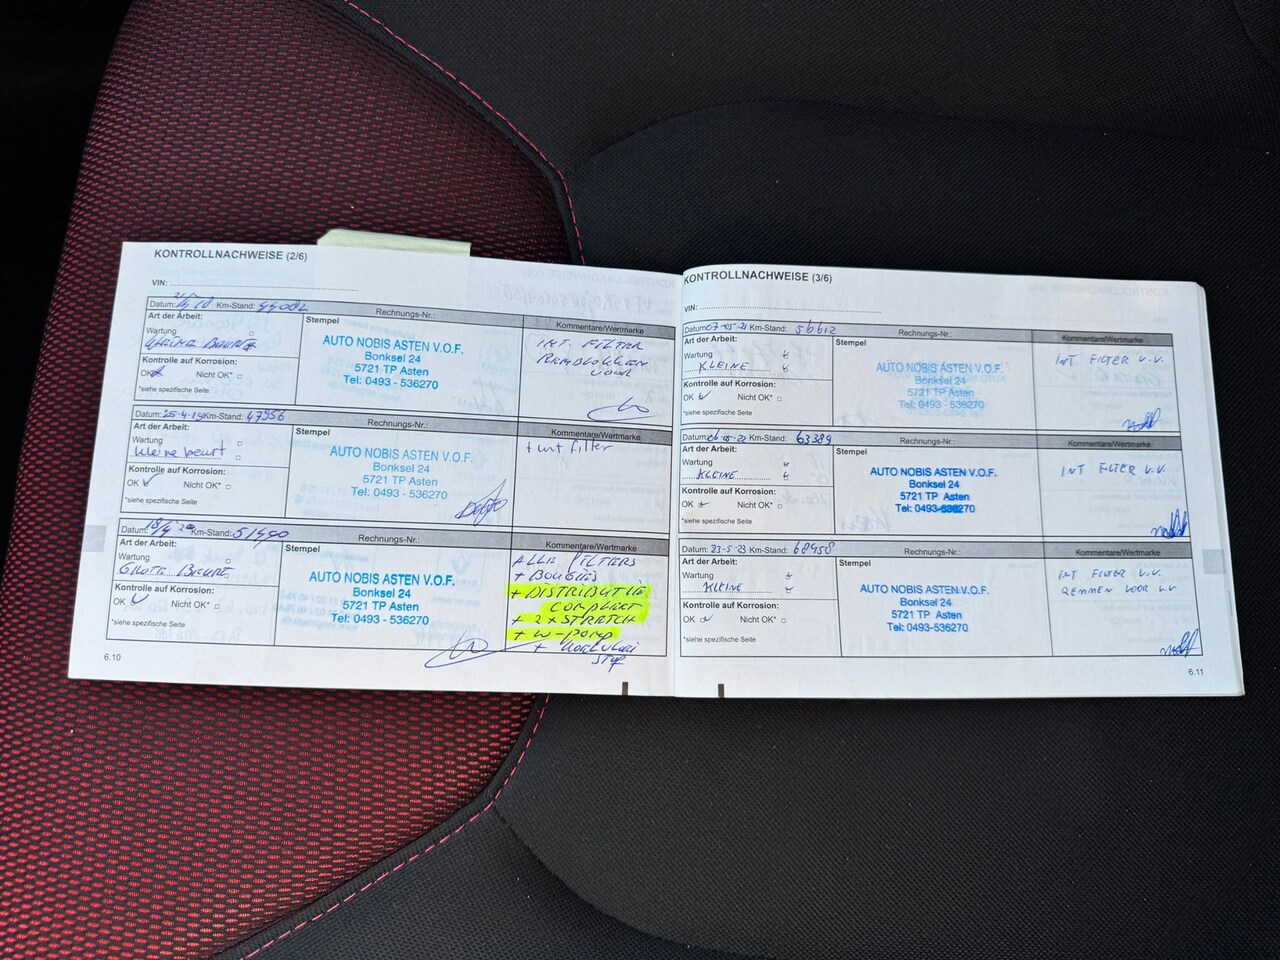 KONTROLLNACHWEISE (2/6)
VIN:
Datum: Km-Stand: 44082 Rechnungs-Nr.:
Art der Arbeit: Stempel Kommentare/Wertmarke
Wartung
KLEINE BEURT
Kontrolle auf Korrosion:
OK Nicht OK*
*siehe spezifische Seite
AUTO NOBIS ASTEN V.O.F.
Bonksel 24
5721 TP Asten
Tel: 0493 - 536270
INT. FILTER
REMBLOKKEN
VOOR
Datum: 25-4-19 Km-Stand: 47956 Rechnungs-Nr.:
Art der Arbeit: Stempel Kommentare/Wertmarke
Wartung
kleine beurt
Kontrolle auf Korrosion:
OK Nicht OK*
*siehe spezifische Seite
AUTO NOBIS ASTEN V.O.F.
Bonksel 24
5721 TP Asten
Tel: 0493 - 536270
+ int filter
Datum: Km-Stand: 51490 Rechnungs-Nr.:
Art der Arbeit: Stempel Kommentare/Wertmarke
Wartung
GROTE BEURT
Kontrolle auf Korrosion:
OK Nicht OK*
*siehe spezifische Seite
AUTO NOBIS ASTEN V.O.F.
Bonksel 24
5721 TP Asten
Tel: 0493 - 536270
ALLE FILTERS
+ BOUGIES
+ DISTRIBUTIE
COMPLEET
+ 2 x STRETCH
+ W-POMP
+
6.10
KONTROLLNACHWEISE (3/6)
VIN:
Datum: 07-05-21 Km-Stand: 56612 Rechnungs-Nr.:
Art der Arbeit: Stempel Kommentare/Wertmarke
Wartung
KLEINE
Kontrolle auf Korrosion:
OK Nicht OK*
*siehe spezifische Seite
AUTO NOBIS ASTEN V.O.F.
Bonksel 24
5721 TP Asten
Tel: 0493-536270
INT FILTER V.V.
Datum: 06-05-22 Km-Stand: 63389 Rechnungs-Nr.:
Art der Arbeit: Stempel Kommentare/Wertmarke
Wartung
KLEINE
Kontrolle auf Korrosion:
OK Nicht OK*
*siehe spezifische Seite
AUTO NOBIS ASTEN V.O.F.
Bonksel 24
5721 TP Asten
Tel: 0493-536270
INT FILTER V.V.
Datum: 23-5-23 Km-Stand: 68958 Rechnungs-Nr.:
Art der Arbeit: Stempel Kommentare/Wertmarke
Wartung
KLEINE
Kontrolle auf Korrosion:
OK Nicht OK*
*siehe spezifische Seite
AUTO NOBIS ASTEN V.O.F.
Bonksel 24
5721 TP Asten
Tel: 0493-536270
INT FILTER V.V.
REMMEN VOOR V.V
6.11